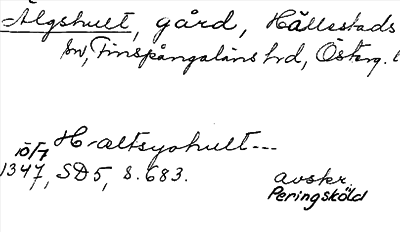 Älgshult, gård, Hällestads
sn, Finspångaläns hrd, Österg. l
H-altsyohult---
15/7
1347, SD5, s. 683.
avskr.
Peringsköld